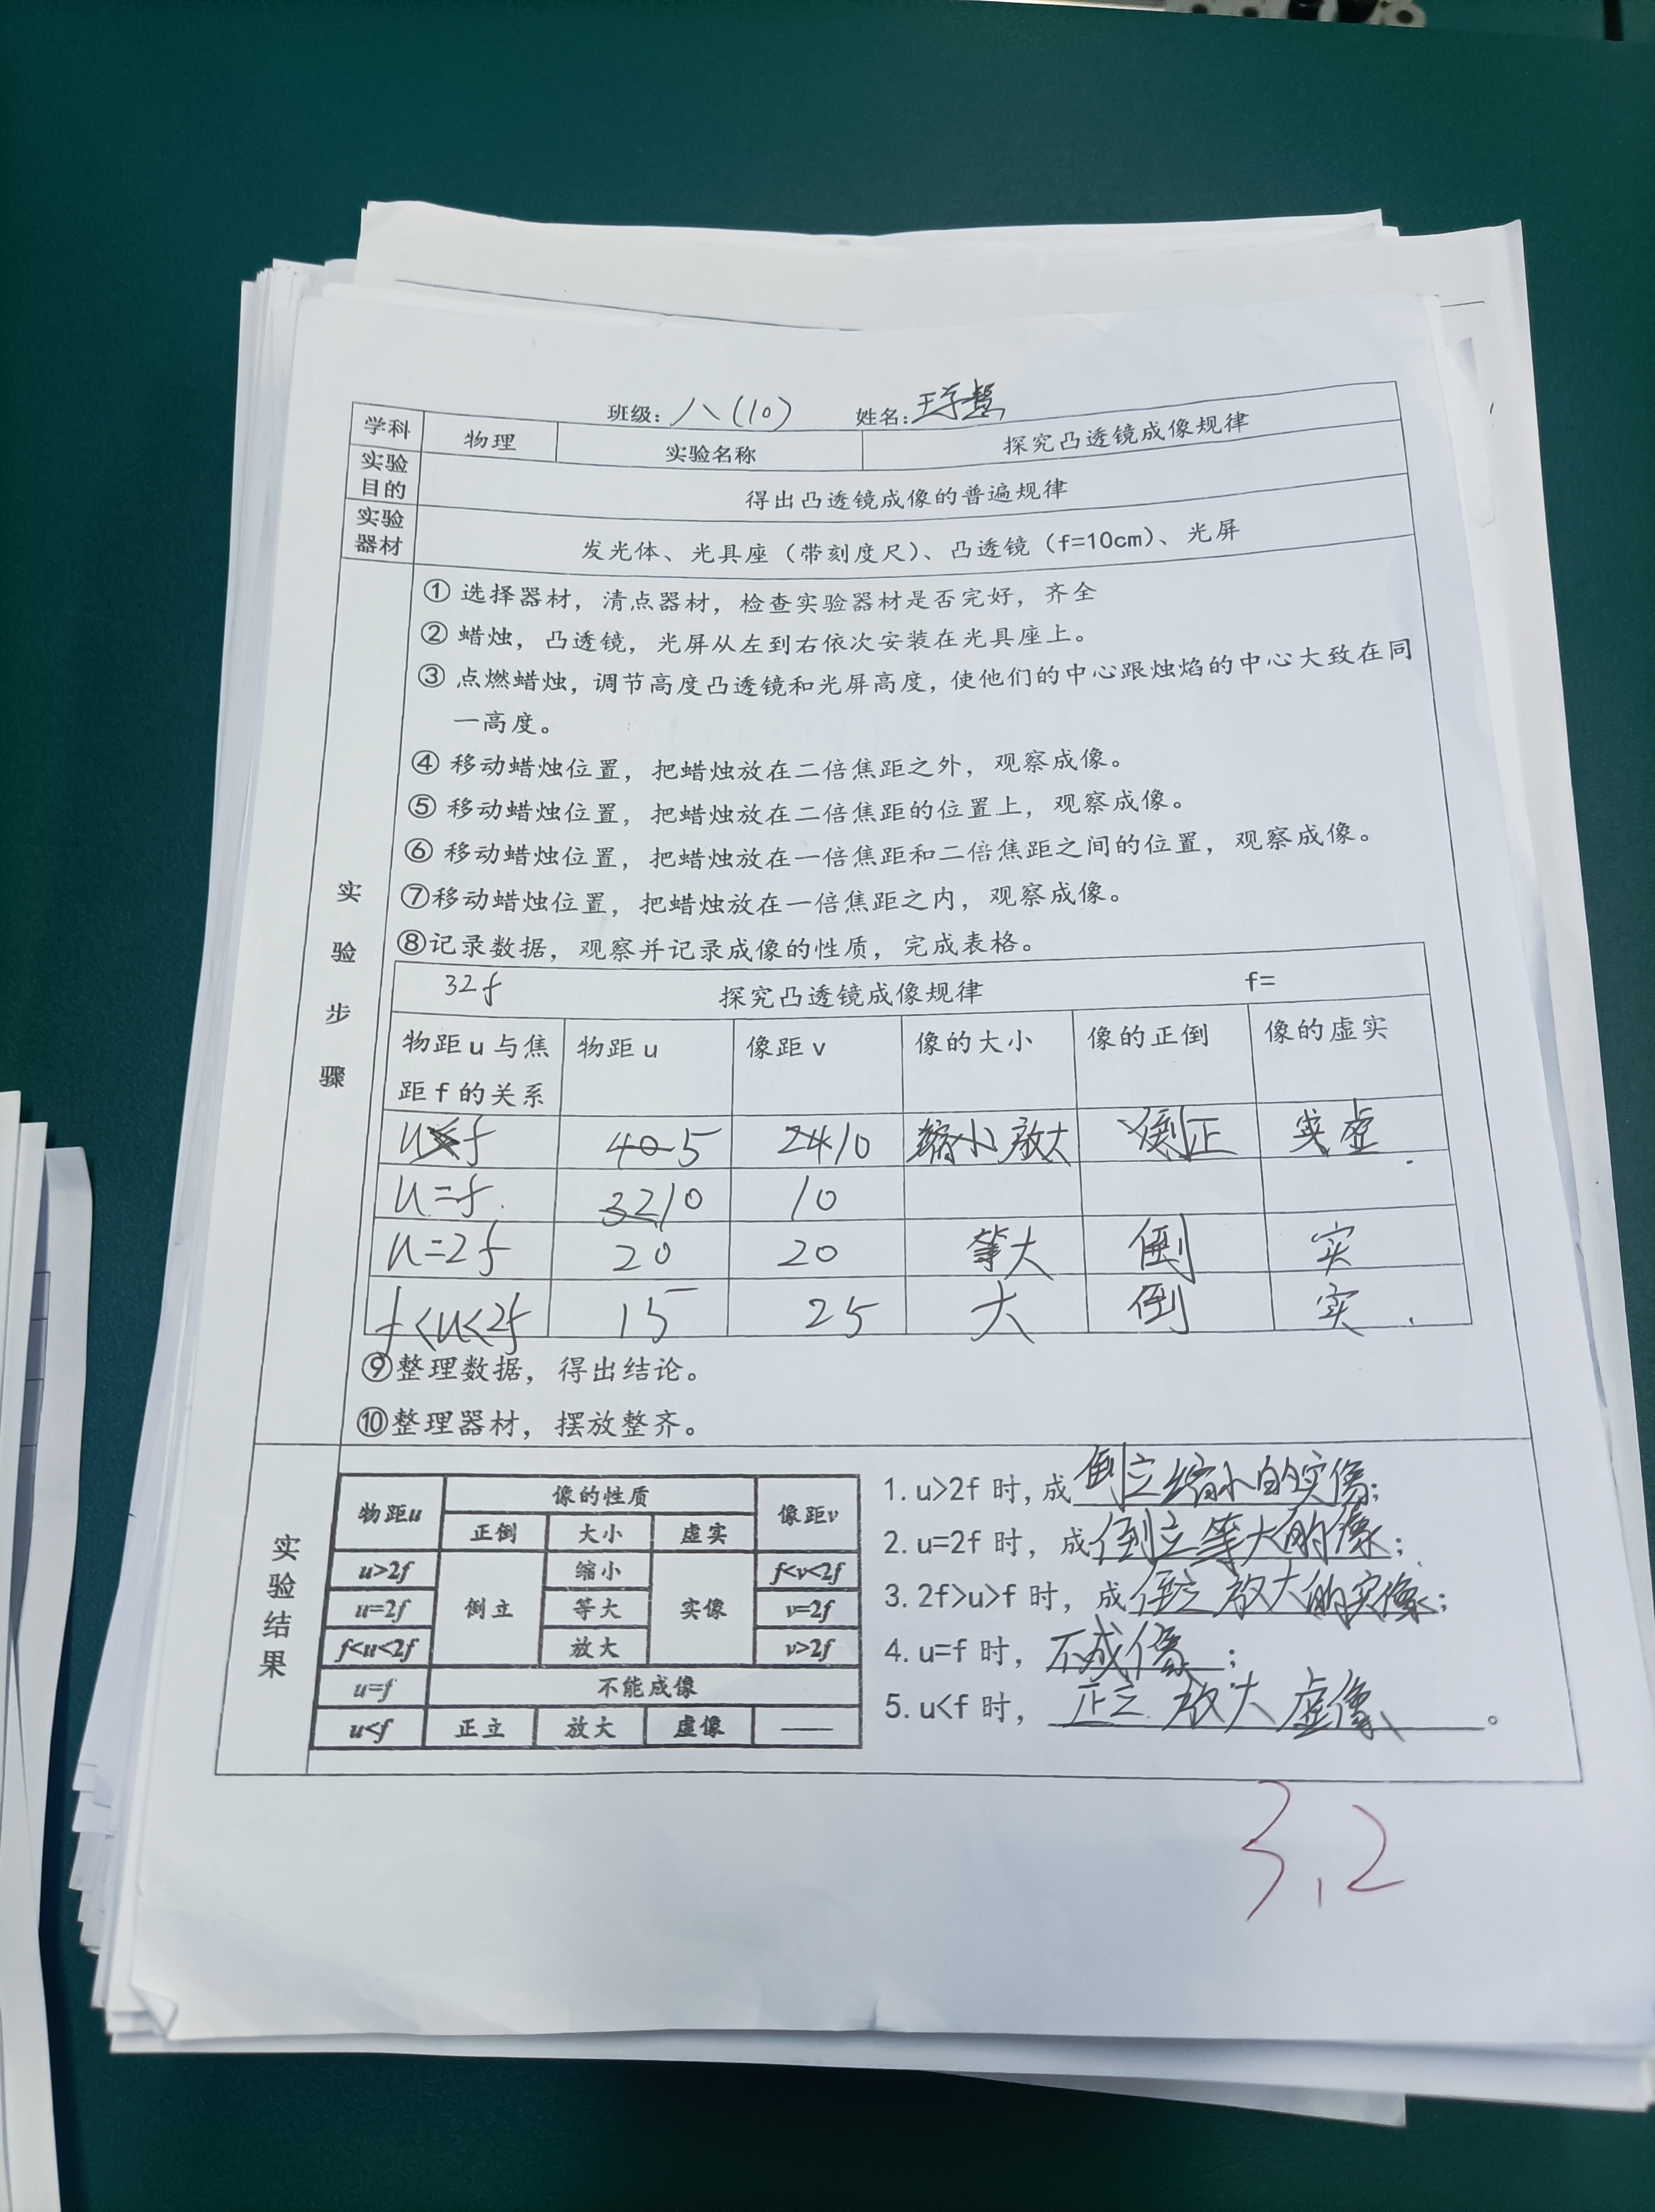 班级：八(10) 姓名：
学科 物理 实验名称 探究凸透镜成像规律
实验目的 得出凸透镜成像的普遍规律
实验器材 发光体、光具座（带刻度尺）、凸透镜（f=10cm）、光屏
实验步骤
① 选择器材，清点器材，检查实验器材是否完好，齐全
② 蜡烛，凸透镜，光屏从左到右依次安装在光具座上。
③ 点燃蜡烛，调节高度凸透镜和光屏高度，使他们的中心跟烛焰的中心大致在同
一高度。
④ 移动蜡烛位置，把蜡烛放在二倍焦距之外，观察成像。
⑤ 移动蜡烛位置，把蜡烛放在二倍焦距的位置上，观察成像。
⑥ 移动蜡烛位置，把蜡烛放在一倍焦距和二倍焦距之间的位置，观察成像。
⑦移动蜡烛位置，把蜡烛放在一倍焦距之内，观察成像。
⑧记录数据，观察并记录成像的性质，完成表格。
32f 探究凸透镜成像规律 f=
物距u与焦 物距u 像距v 像的大小 像的正倒 像的虚实
距f的关系
u<f 40 5 24 10 缩小 放大 倒 正 实 虚
u=f 32 10 10
u=2f 20 20 等大 倒 实
f<u<2f 15 25 大 倒 实
⑨整理数据，得出结论。
⑩整理器材，摆放整齐。
实验结果
物距u 像的性质 像距v
正倒 大小 虚实
u>2f 倒立 缩小 实像 f<v<2f
u=2f 等大 v=2f
f<u<2f 放大 v>2f
u=f 不能成像
u<f 正立 放大 虚像 ——
1. u>2f 时，成倒立缩小的实像；
2. u=2f 时，成倒立等大的像；
3. 2f>u>f 时，成倒立放大的实像；
4. u=f 时，不成像；
5. u<f 时，正立放大虚像。
3.2